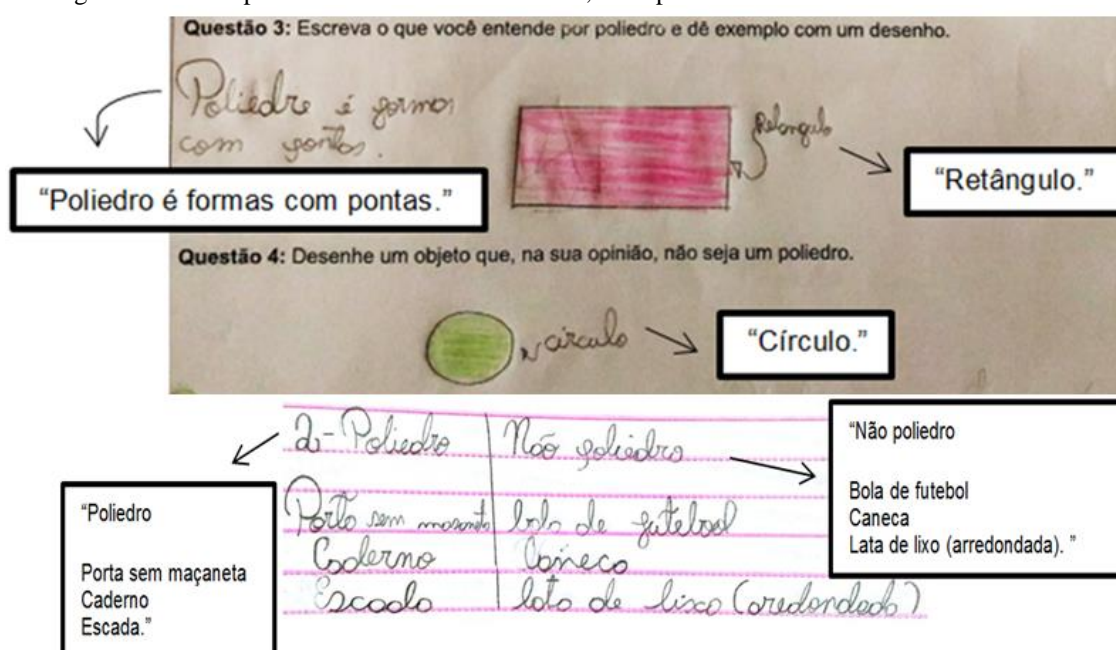 Questão 3: Escreva o que você entende por poliedro e dê exemplo com um desenho.
Poliedro é formas
com pontas.
Retangulo
"Poliedro é formas com pontas."
"Retângulo."
Questão 4: Desenhe um objeto que, na sua opinião, não seja um poliedro.
círculo
"Círculo."
2- Poliedro | Não poliedro
Porta sem maçaneta | bola de futebool
Caderno | Caneca
Escada | lata de lixo (aredondada)
"Poliedro
Porta sem maçaneta
Caderno
Escada."
"Não poliedro
Bola de futebol
Caneca
Lata de lixo (arredondada). "